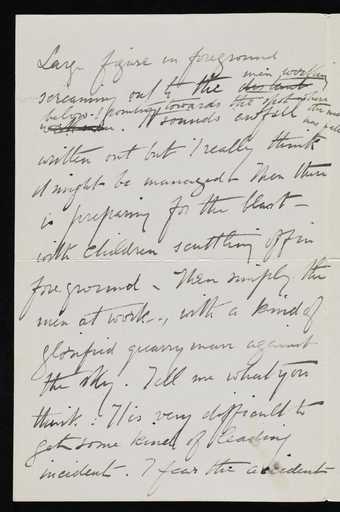 Large figure in foreground
screaming out to the distant men working
below & pointing towards the spot where
workmen. It sounds awful the man was
written out but I really think
it might be managed. Then there
is preparing for the blast –
with children scuttling off in
foreground – Then simply the
men at work –, with a kind of
glorified quarry man against
the sky. Tell me what you
think: It is very difficult to
get some kind of leading
incident. I fear the accident